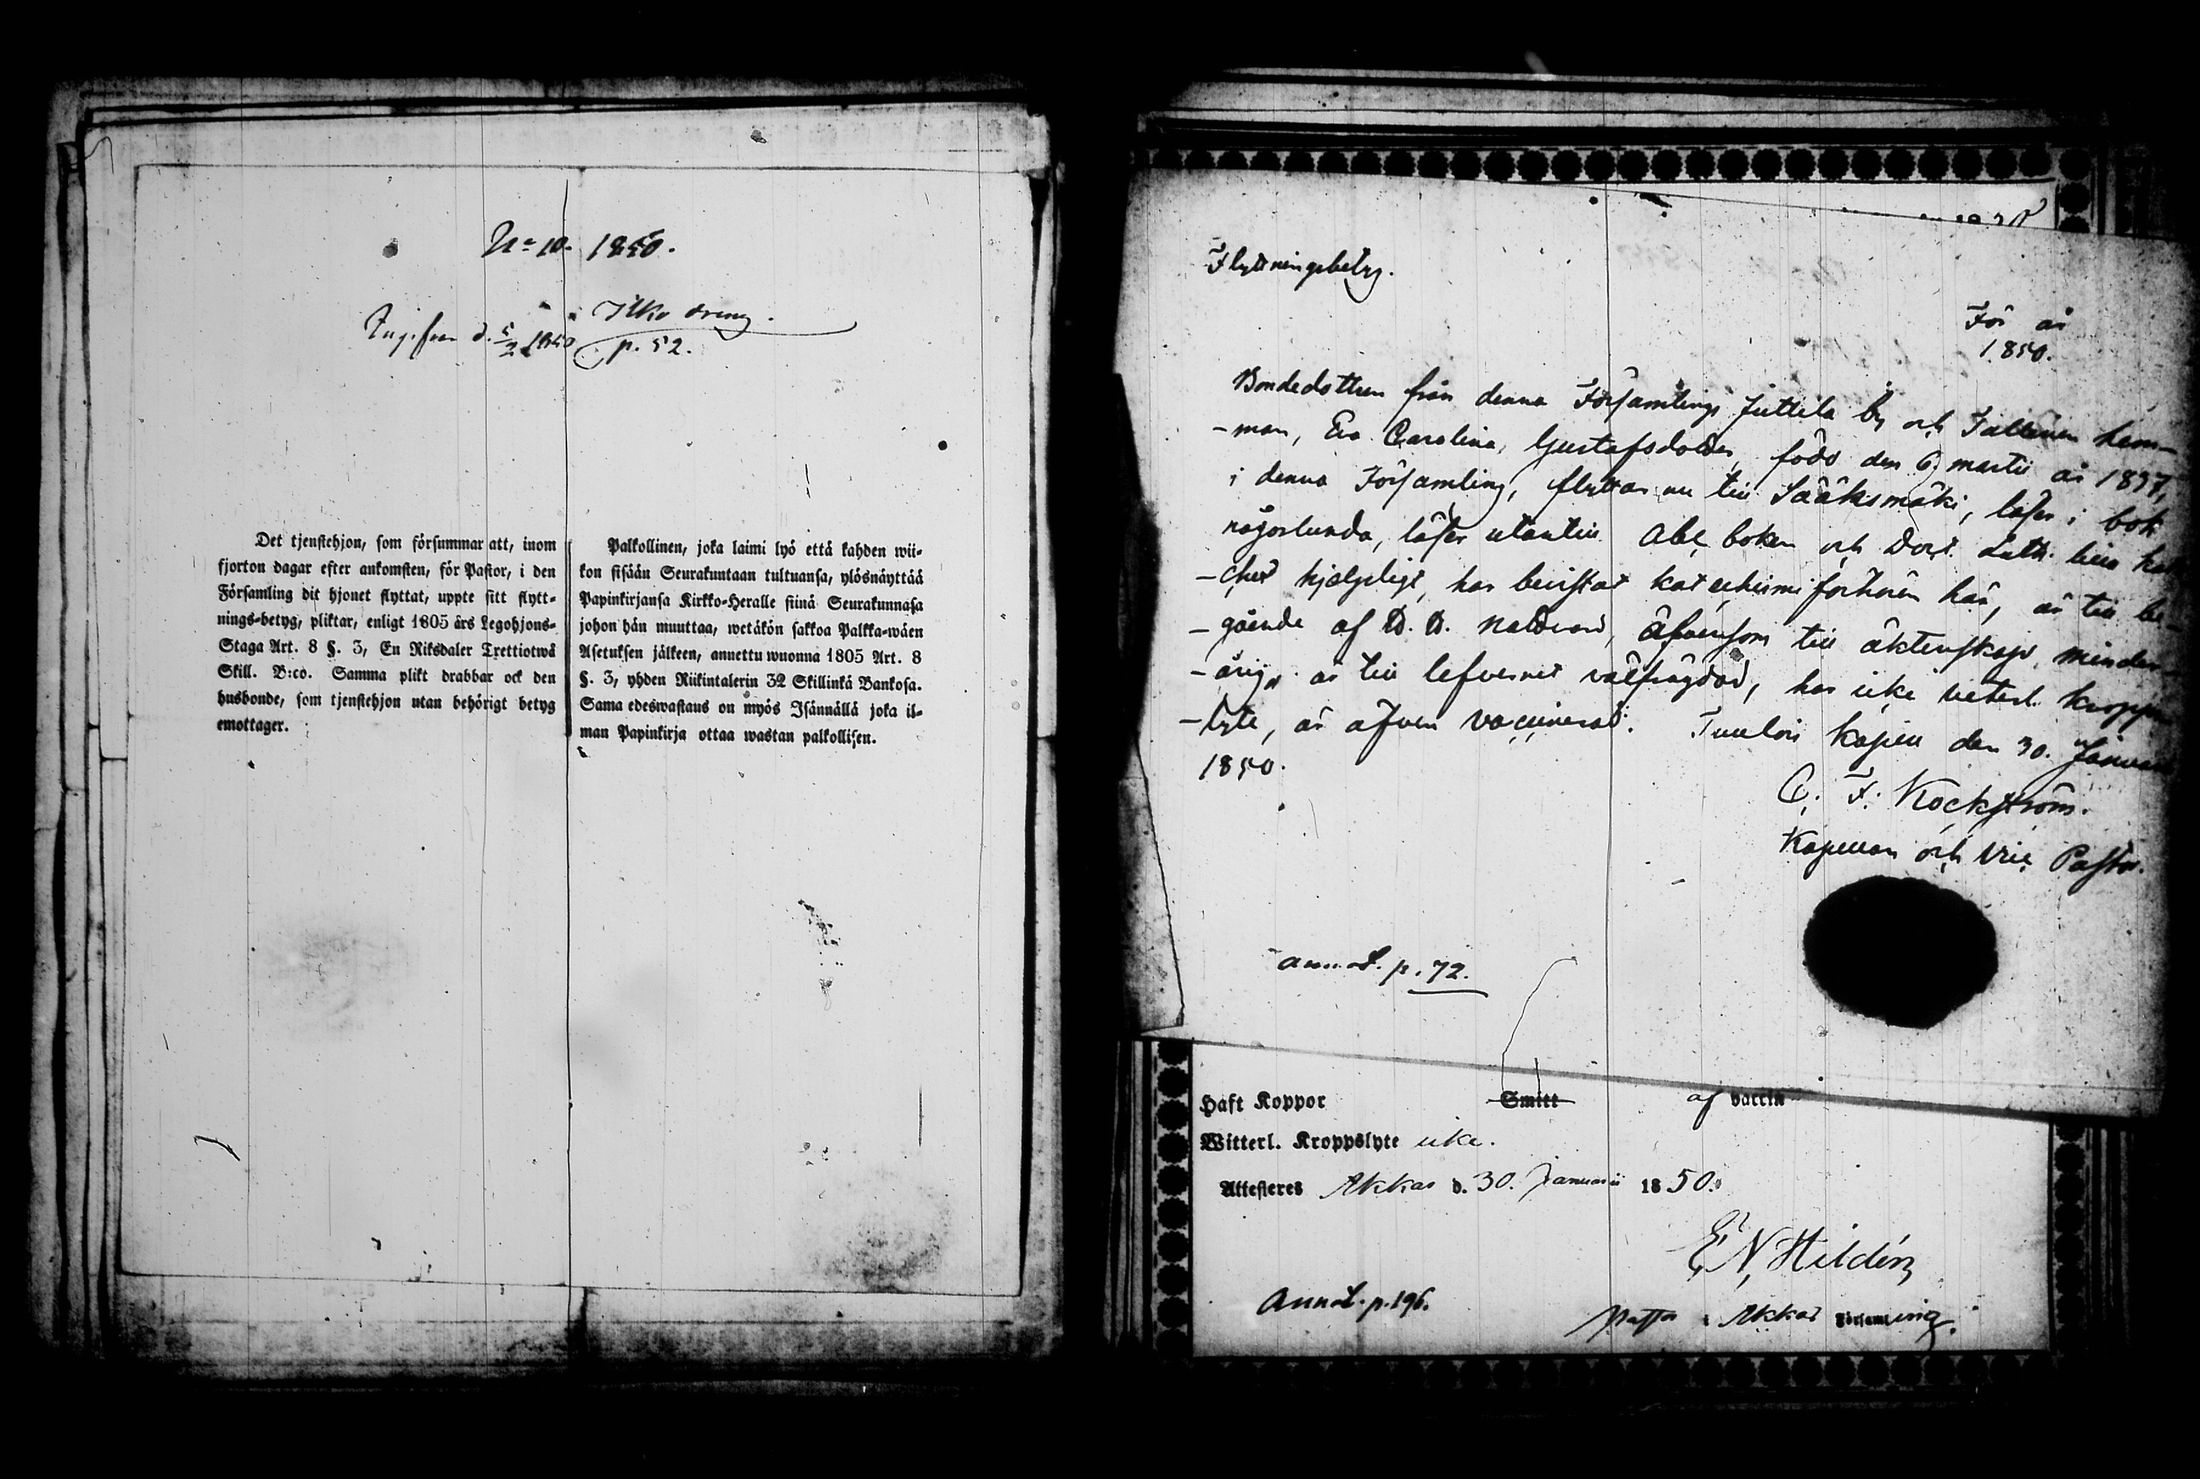 No 10. 1850.
Ilko dreng.
d. 5/2 1850 p. 52.
Det tjenstehjon, som försummar att, inom
fjorton dagar efter ankomsten, för Pastor, i den
Församling dit hjonet flyttat, uppte sitt flytt-
nings-betyg, pliktar, enligt 1805 års Legohjons-
Staga Art. 8 §. 3, En Riksdaler Trettiotwå
Skill. B:co. Samma plikt drabbar ock den
husbonde, som tjenstehjon utan behörigt betyg
emottager.
Palkollinen, joka laimi lyö että kahden wii-
kon sisään Seurakuntaan tultuansa, ylösnäyttää
Papinkirjansa Kirkko-Heralle siinä Seurakunnasa
johon hän muuttaa, wetäkön sakkoa Palkka-wäen
Asetuksen jälkeen, annettu wuonna 1805 Art. 8
§. 3, yhden Riikintalerin 32 Skillinkä Bankosa.
Sama edeswastaus on myös Isännällä joka il-
man Papinkirja ottaa wastan palkollisen.
Flyttningsbetyg.
För år
1850.
Bondedottren från denna Församlings Juttela by och hem-
-man, Eva Carolina Gustafsdotter, född den 6 martii år 1837,
i denna Församling, flyttar nu till Sääksmäki, läser i bok
någorlunda, läser utantill Abc boken och Doct. Luth. lilla kat
-ches hjelpligt, har bevistat katechismiförhören här, är till be-
-gående af H. H. Nattvard, äfvensom till äktenskap minder-
-årig, är till lefvernet välfrägdad, har icke veterl. kropps
-lyte, är äfven vaccinerad. Tuulois kapell den 30. Januari
1850.
C. F. Kockström.
Kapellan och Vice Pastor.
annot. p. 72.
Haft Koppor Smitt af Vaccin
Witterl. Kroppslyte icke.
Attesteres Akkas d. 30. Januarii 1850.
E. N. Hildén
Annot. p. 196.
Pastor i Akkas Församling.